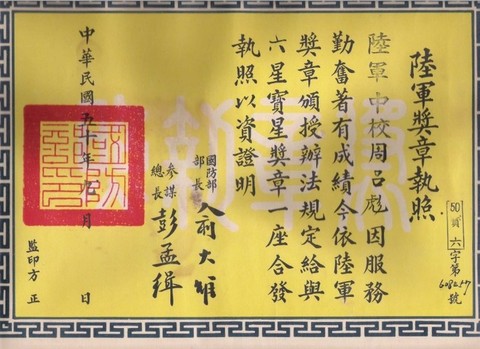 陸軍獎章執照
50貢
六字第
號
陸軍中校周呂彪因服務
勤奮著有成績今依陸軍
獎章頒授辦法規定給與
六星寶星獎章一座合發
執照以資證明
國防部
部長
俞大維
參謀
總長
彭孟緝
中華民國五十年 月 日
監印方正